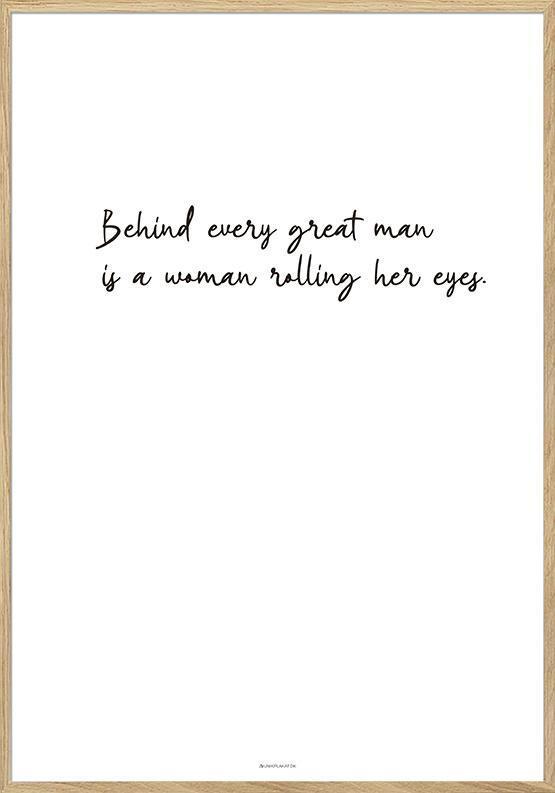 Behind every great man
is a woman rolling her eyes.